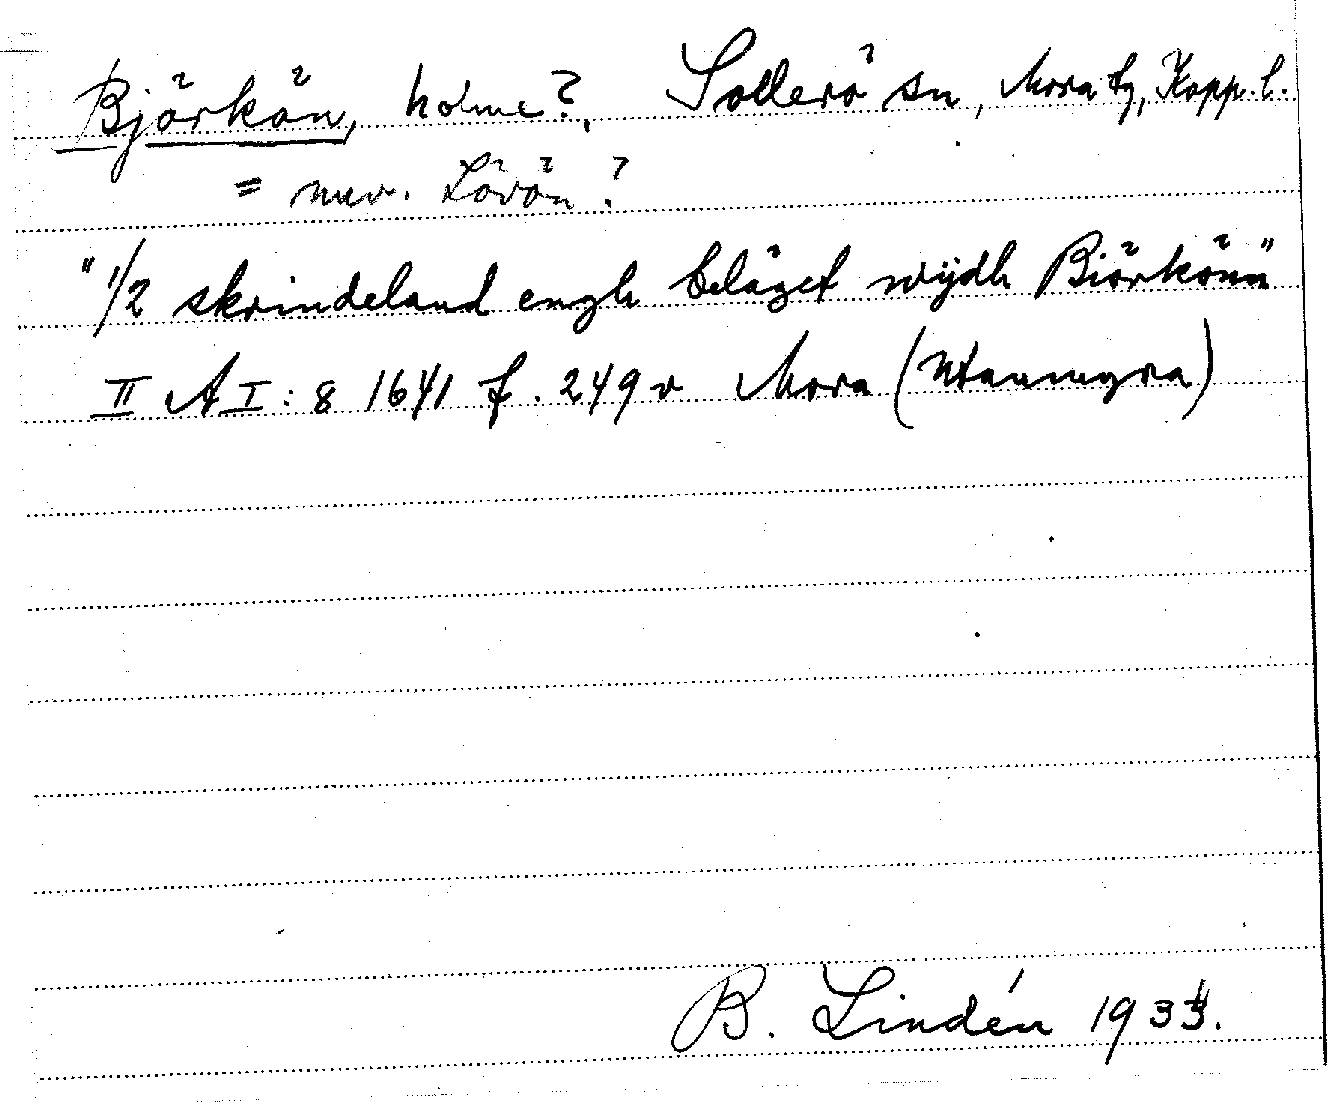 Björkön, holme?, Sollerö sn, Mora tg, Kopp. l.
= nuv. Lövön?
"1/2 skrindeland engh beläget wijdh Biörkönn"
II A I: 8 1641 f. 249 v Mora (Utanmyra)
B. Lindén 1934.